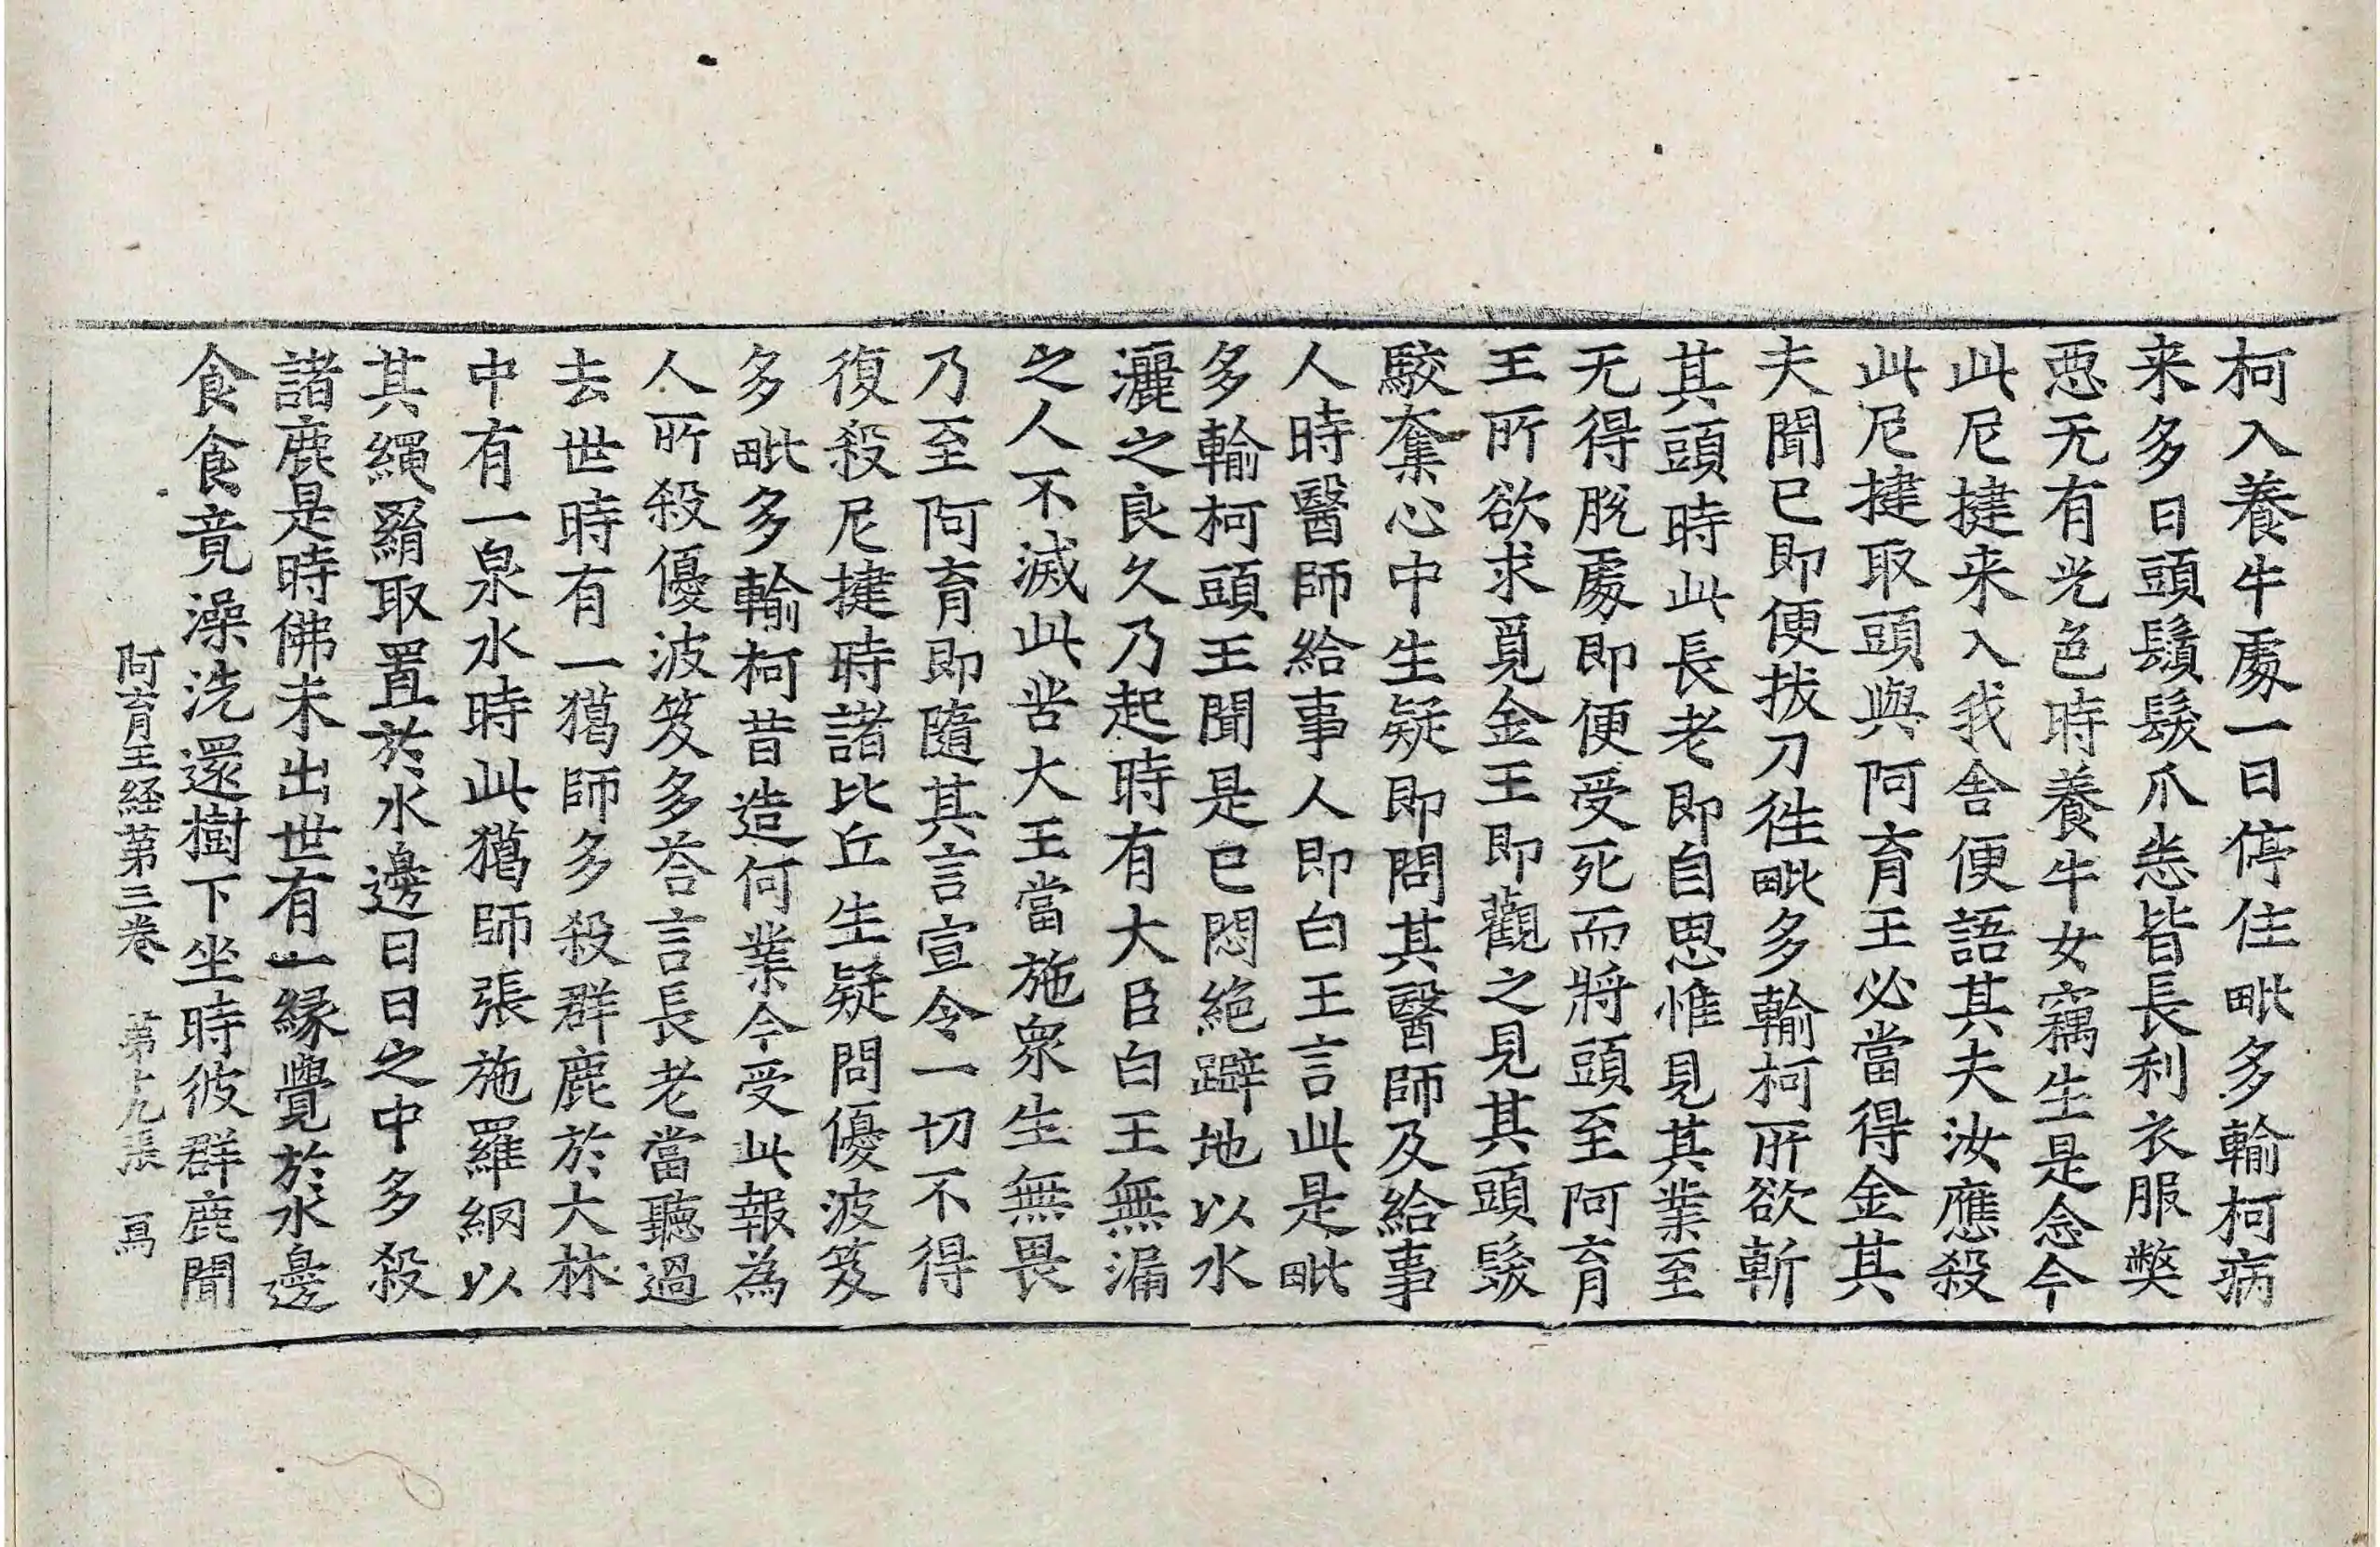 柯入養牛處一日停住毗多輸柯病
来多日頭鬚髮爪悉皆長利衣服弊
惡无有光色時養牛女竊生是念今
此尼揵来入我舍便語其夫汝應殺
此尼揵取頭與阿育王必當得金其
夫聞已即便拔刀往毗多輸柯所欲斬
其頭時此長老即自思惟見其業至
无得脫處即便受死而將頭至阿育
王所欲求覓金王即觀之見其頭髮
駮奪心中生疑即問其醫師及給事
人時醫師給事人即白王言此是毗
多輸柯頭王聞是已悶絕躃地以水
灑之良久乃起時有大臣白王無漏
之人不滅此苦大王當施衆生無畏
乃至阿育即隨其言宣令一切不得
復殺尼揵時諸比丘生疑問優波笈
多毗多輸柯昔造何業今受此報為
人所殺優波笈多荅言長老當聽過
去世時有一獦師多殺群鹿於大林
中有一泉水時此獦師張施羅網以
其繩羂取置於水邊日日之中多殺
諸鹿是時佛未出世有一緣覺於水邊
食食竟澡洗還樹下坐時彼群鹿聞
阿育王経第三卷 第十九張 寫